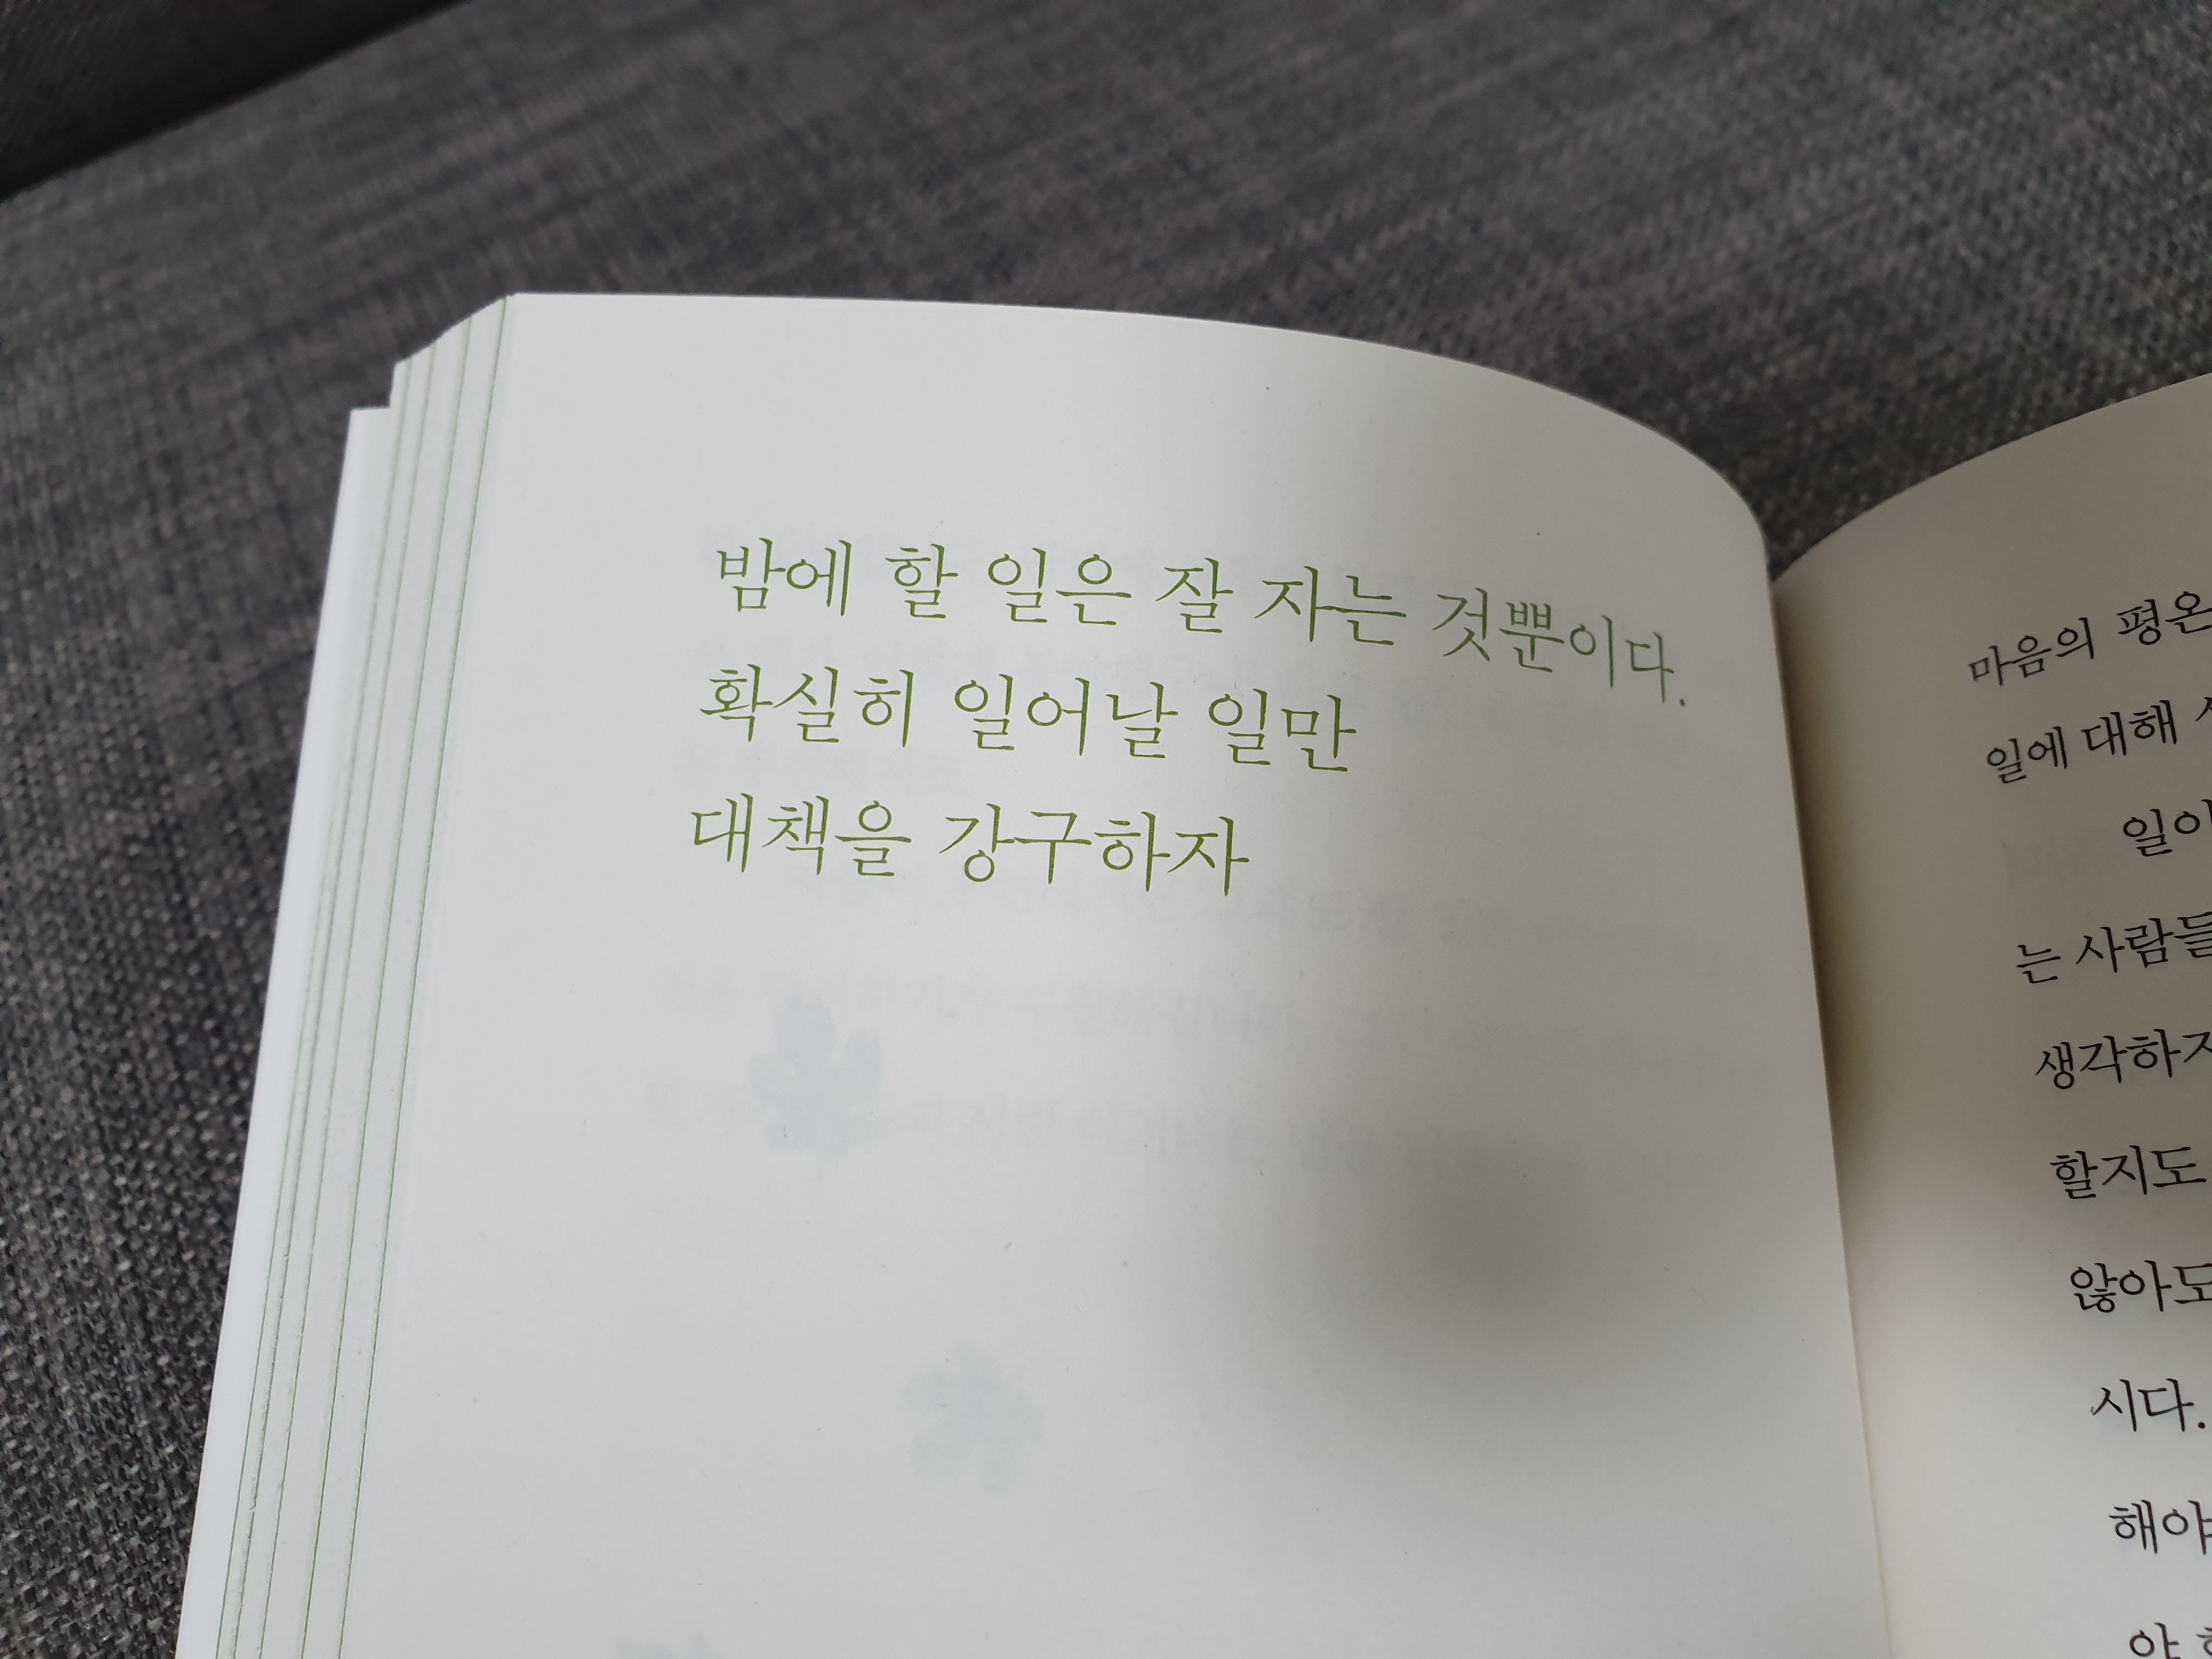 밤에 할 일은 잘 자는 것뿐이다.
확실히 일어날 일만
대책을 강구하자
마음의 평온
일에 대해
일이
는 사람들
생각하지
할지도
않아도
시다.
해야
야